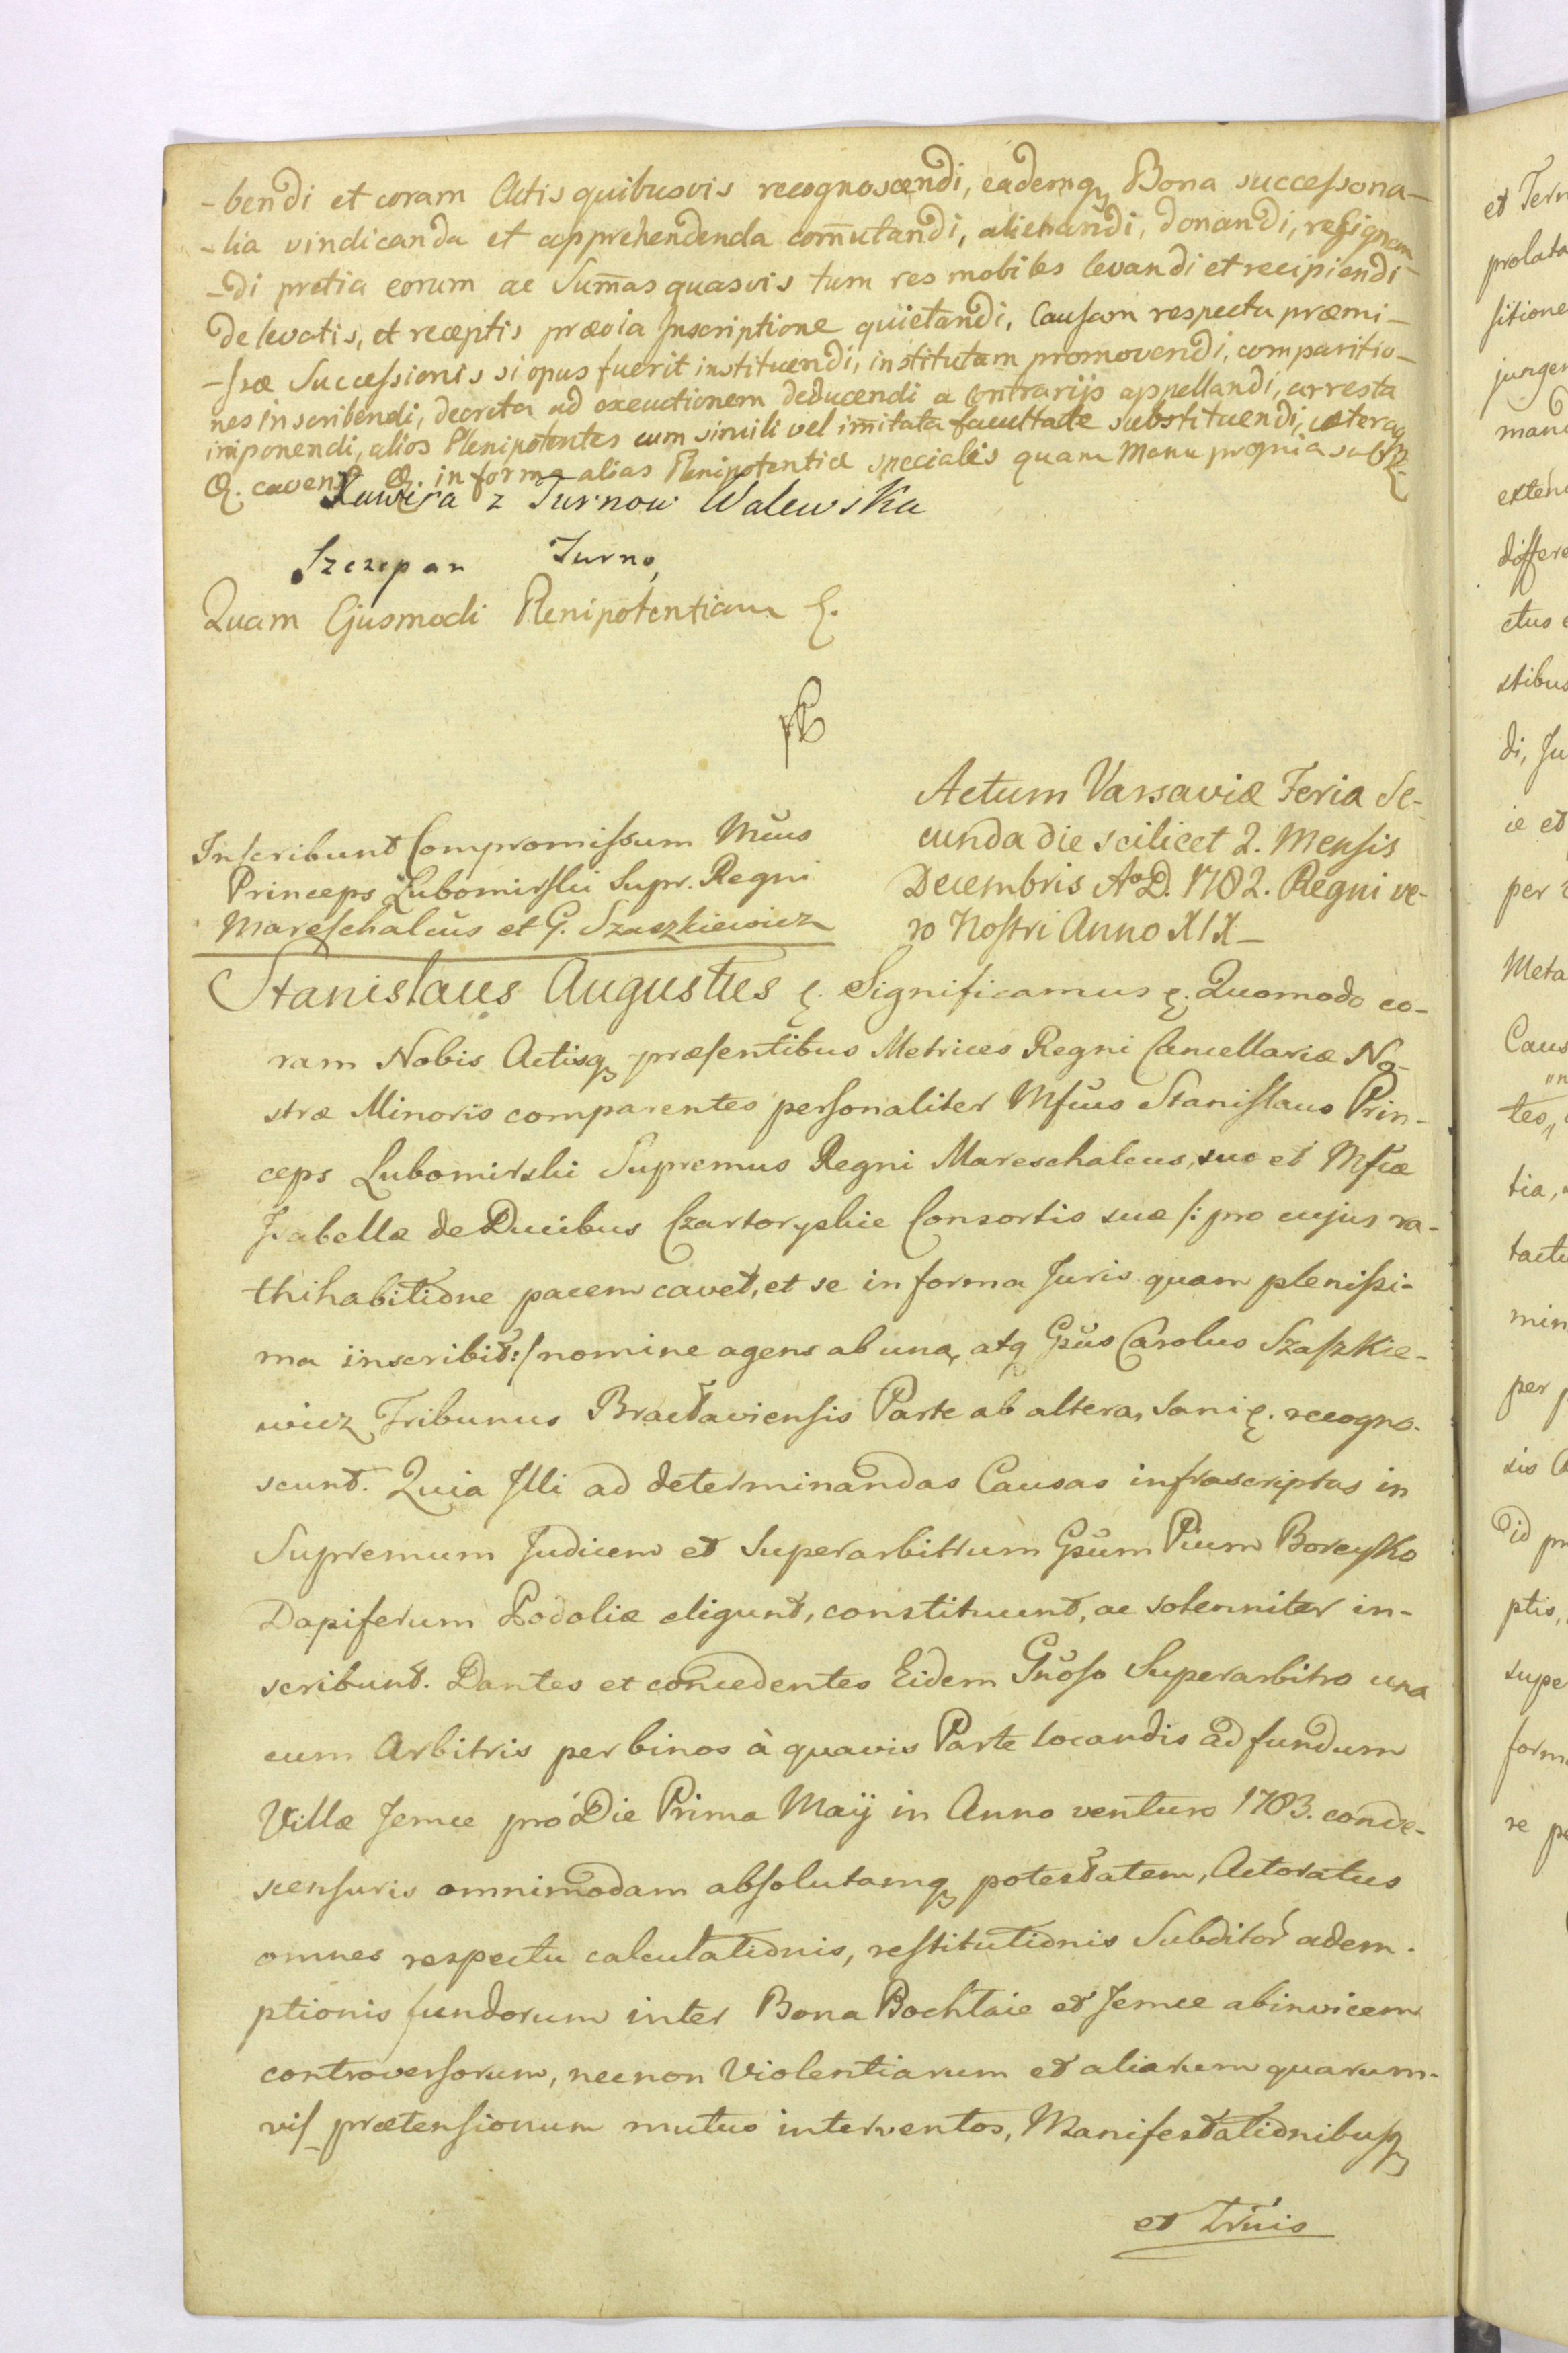 -bendi et coram Actis quibusvis recognoscendi, eademq₃ Bona successona-
-lia vindicanda et apprehendenda com̄utandi, alienandi, donandi, resignan-
-di pretia eorum ac Sum̄as quasvis tum res mobiles levandi et recipiendi
de levatis, et receptis prævia Inscriptione quietandi, Causam respectu præmi-
-ssæ Successionis si opus fuerit instituendi, institutam promovendi, comparitio-
nes inscribendi, decreta ad executionem deducendi a Contrarijs appellandi, arresta
imponendi, alios Plenipotentes cum simili vel im̄itata facultate substituendi, cæteraq₃
&. caven? &. in forma alias Plenipotentiæ specialis quam Manu propria subscr
Xawera z Turnow Walewska
Szczepan Turno,
Quam Ejusmodi Plenipotentiam &.
Actum Varsaviæ Feria Se-
cunda die scilicet 2. Mensis
Decembris A°D. 1782. Regni ve-
ro Nostri Anno XIX-
Inscribunt Compromissum Mcus
Princeps Lubomirski Supr. Regni
Mareschalcus et G. Szaszkiewicz
Stanislaus Augustus &. Significamus &. Quomodo co-
ram Nobis Actisq₃ præsentibus Metrices Regni Cancellariæ No-
stræ Minoris comparentes personaliter Mfcus Stanislaus Prin-
ceps Lubomirski Supremus Regni Mareschalcus, suo et Mfcæ
Isabellæ de Ducibus Czartoryskie Consortis suæ /: pro cujus ra-
thihabitione pacem cavet, et se in forma Juris quam plenissi-
ma inscribit :/ nomine agens ab una, atq Gsus Carolus Szaszkie-
wicz Tribunus Braclaviensis Parte ab altera, Sani &. recogno-
scunt. Quia Illi ad determinandas Causas infrascriptas in
Supremum Judicem et Superarbitrum Gsum Pium Boreyko
Dapiferum Podoliæ eligunt, constituunt, ac solenniter in-
scribunt. Dantes et concedentes Eidem Gnoso Superarbitro una
cum Arbitris per binos à quavis Parte locandis ad fundum
Villæ Jemce pro Die Prima Maij in Anno venturo 1783. conde-
scensuris omnimodam absolutamq₃ potestatem, Actoratus
omnes respectu calculationis, restitutionis Subditor̄ adem-
ptionis fundorum inter Bona Bochtaie et Jemce abinvicem
controversorum, necnon Violentiarum et aliarum quarum-
vis prætensionum mutuo interventos, Manifestationibusq₃
et Tr̄nis